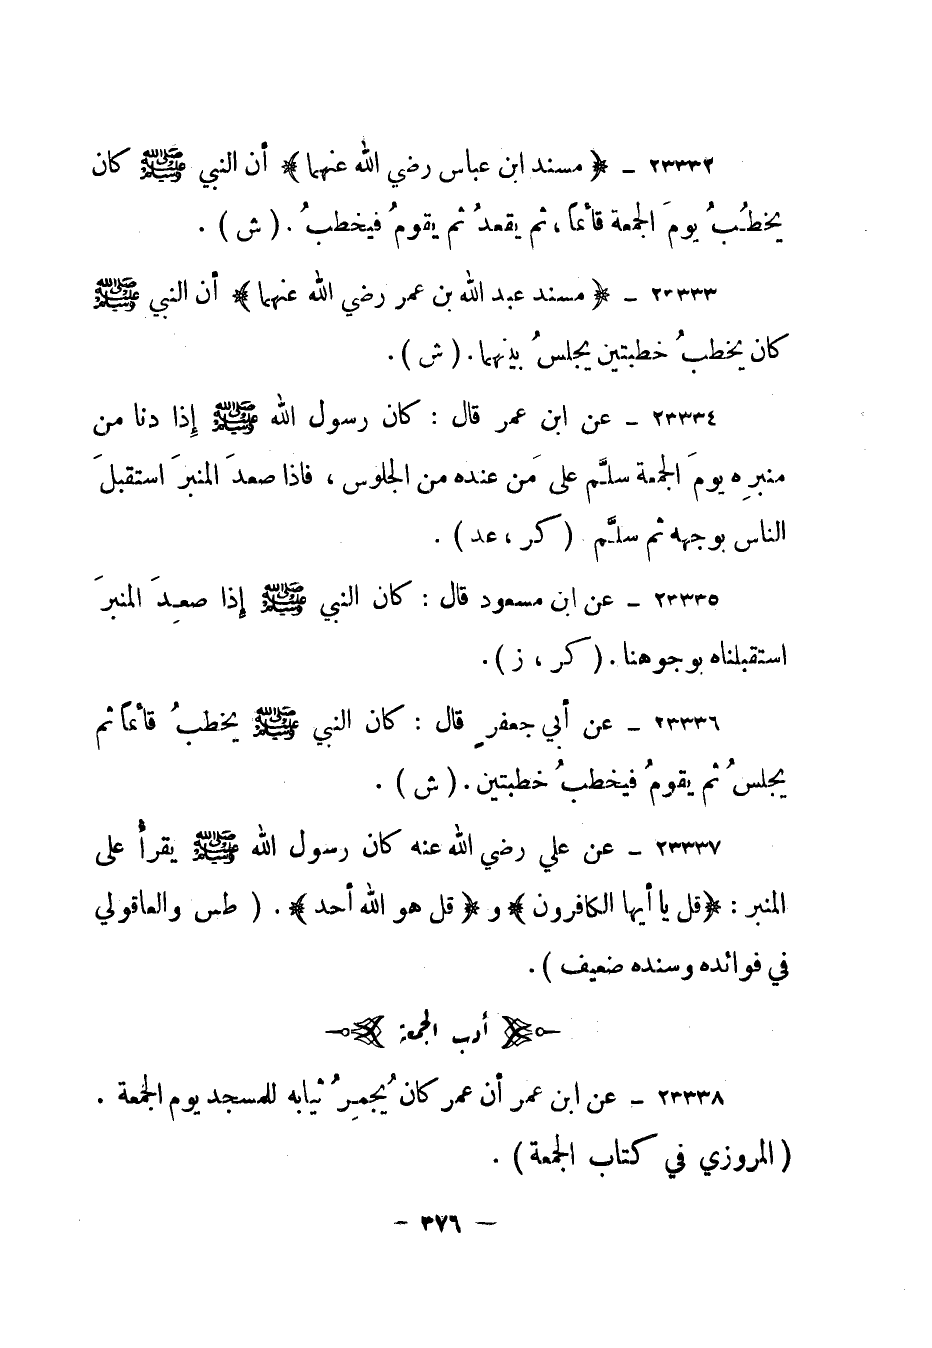 ٢٣٣٣٢ ـ ﴿ مسند ابن عباس رضي الله عنهما ﴾ أن النبي ﷺ كان
يخطُبُ يومَ الجمعة قائماً ، ثم يقعدُ ثم يقومُ فيخطبُ . ( ش ) .
٢٣٣٣٣ ـ ﴿ مسند عبد الله بن عمر رضي الله عنهما ﴾ أن النبي ﷺ
كان يخطبُ خطبتين يجلسُ بينهما . ( ش ) .
٢٣٣٣٤ ـ عن ابن عمر قال : كان رسول الله ﷺ إِذا دنا من
منبرِه يومَ الجمعة سلَّم على مَن عنده من الجلوس ، فاذا صعدَ المنبرَ استقبلَ
الناس بوجهه ثم سلَّم ( كر ، عد ) .
٢٣٣٣٥ ـ عن ابن مسعود قال : كان النبي ﷺ إِذا صعِدَ المنبرَ
استقبلناه بوجوهنا . ( كر ، ز ) .
٢٣٣٣٦ ـ عن أبي جعفرٍ قال : كان النبي ﷺ يخطبُ قائماً ثم
يجلسُ ثم يقومُ فيخطبُ خطبتين . ( ش ) .
٢٣٣٣٧ ـ عن علي رضي الله عنه كان رسول الله ﷺ يقرأُ على
المنبر : ﴿ قل يا أيها الكافرون ﴾ و ﴿ قل هو الله أحد ﴾ . ( طس والعاقولي
في فوائده وسنده ضعيف ) .
أدب الجمعة
٢٣٣٣٨ ـ عن ابن عمر أن عمر كان يُجمِرُ ثيابه للمسجد يوم الجمعة .
( المروزي في كتاب الجمعة ) .
- ٣٧٦ -